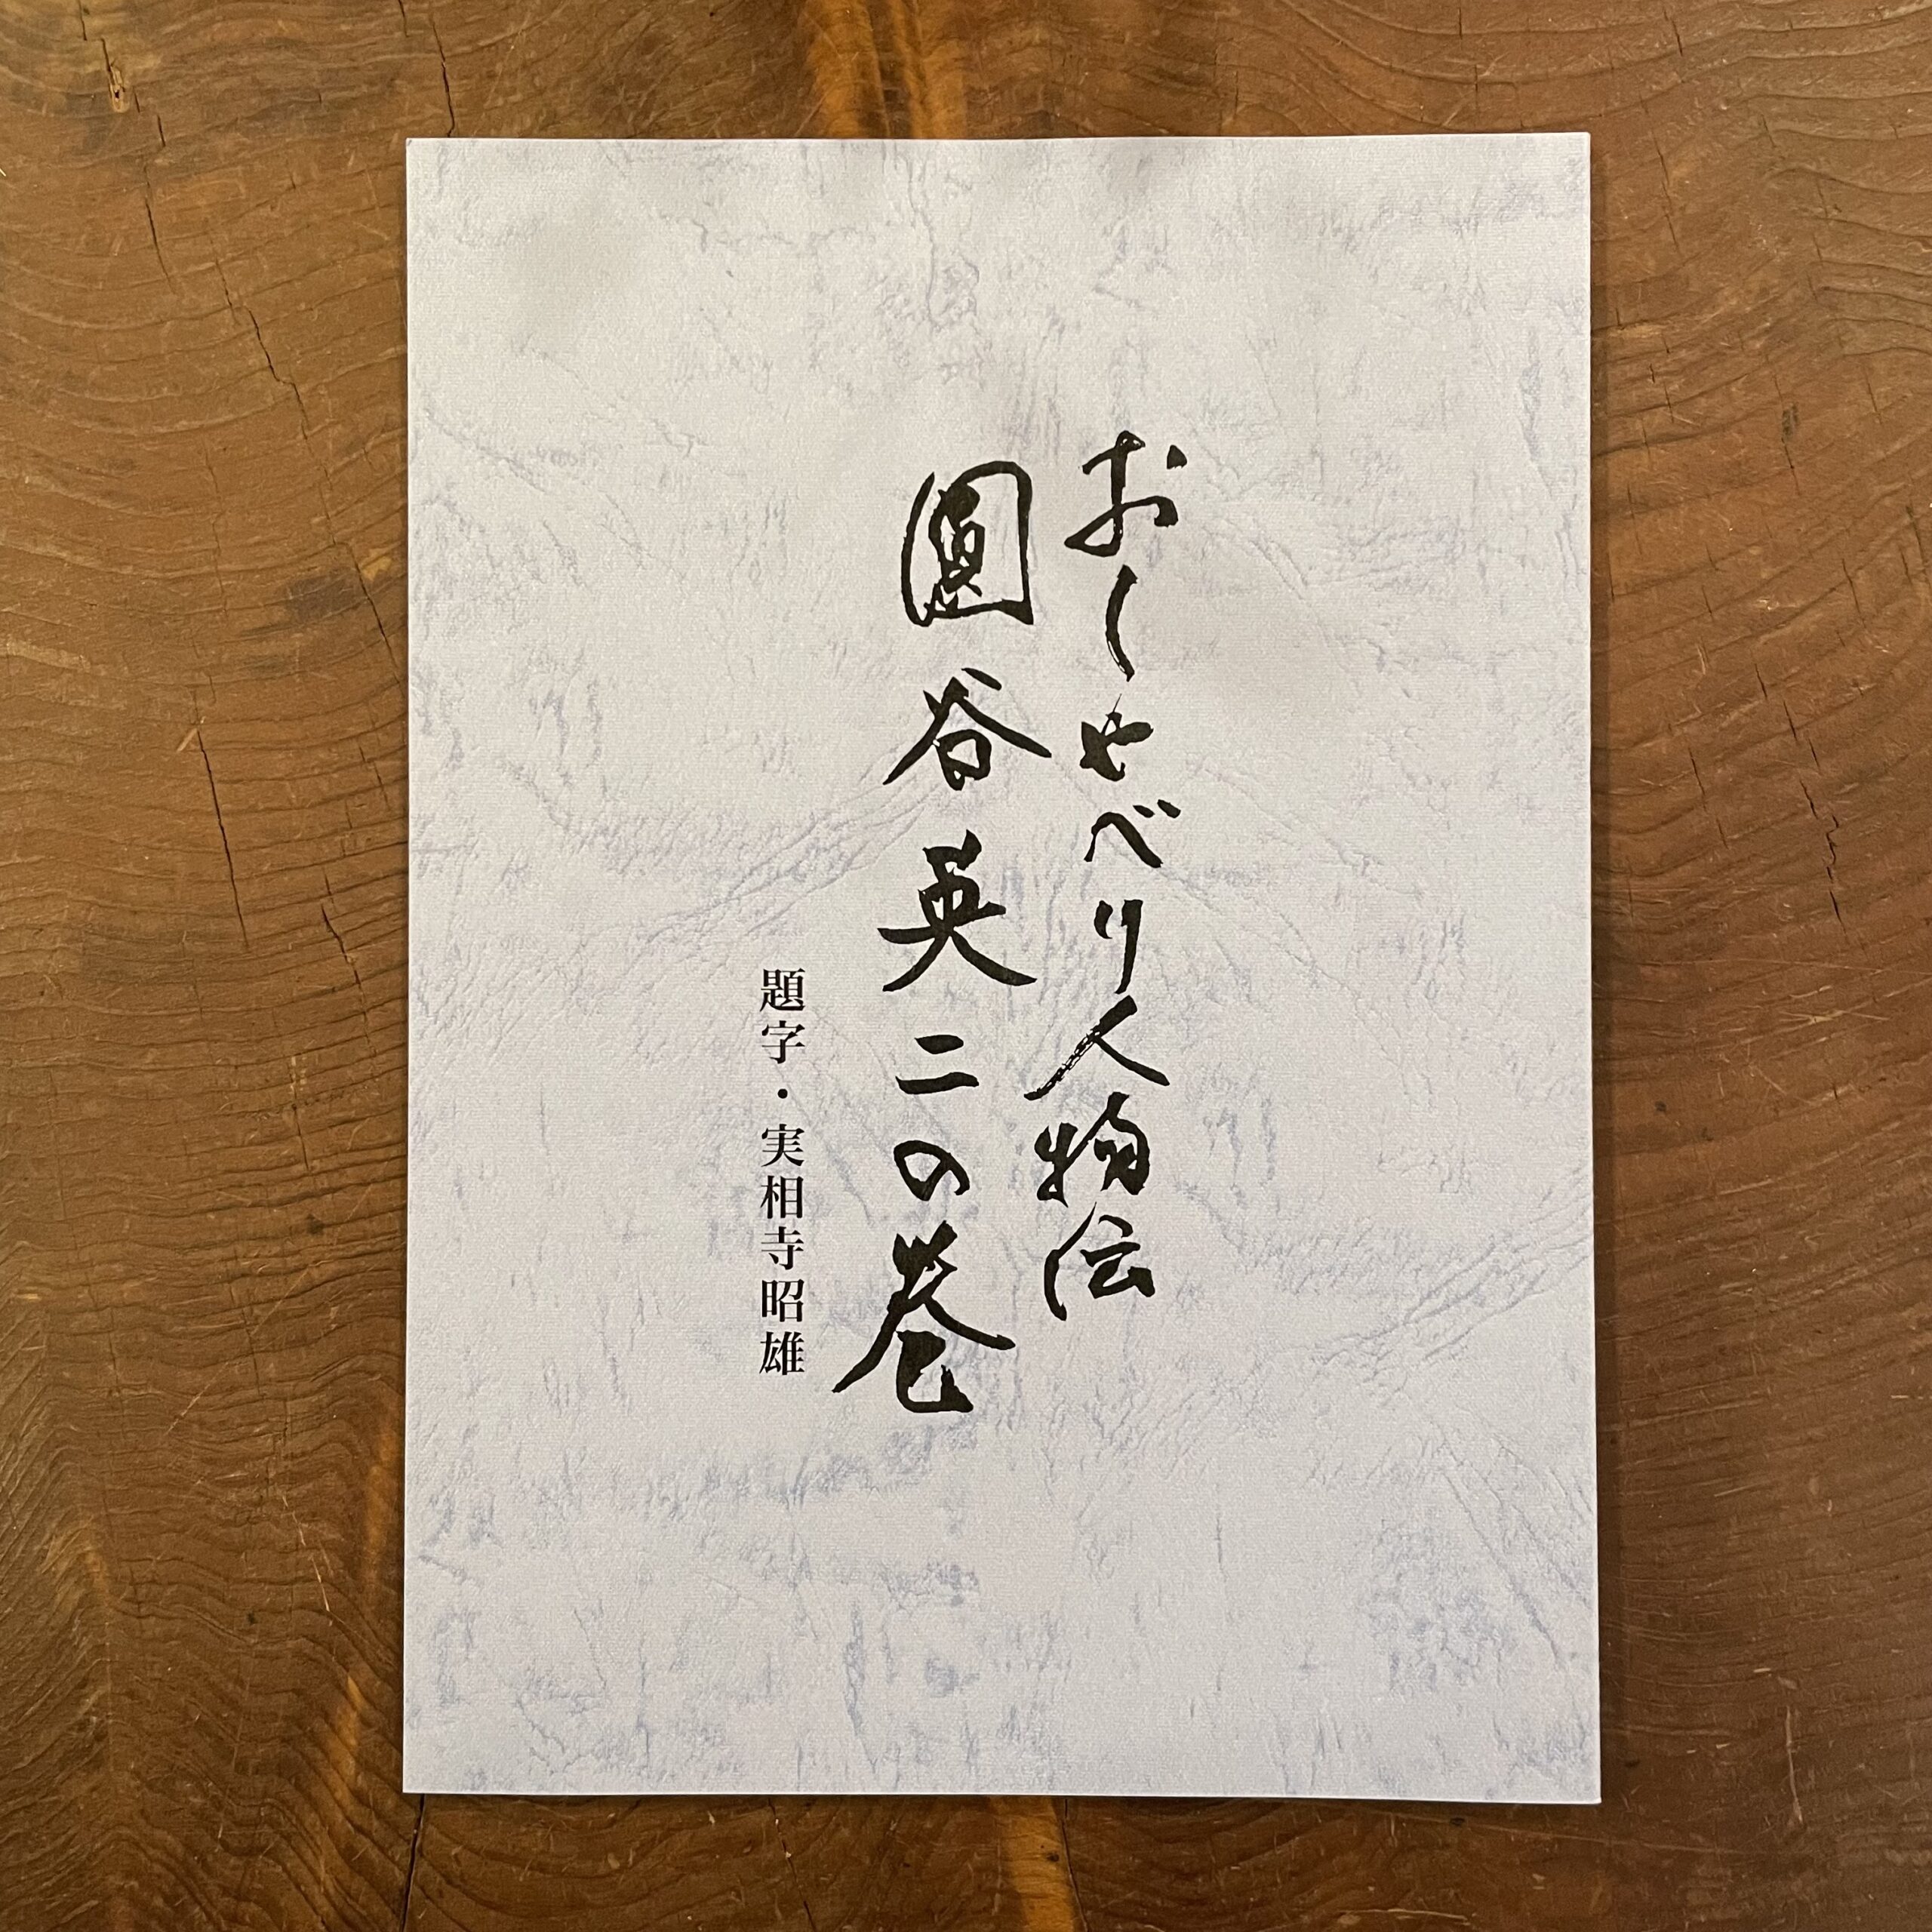 おしゃべり人物伝
圓谷英二の巻
題字・実相寺昭雄